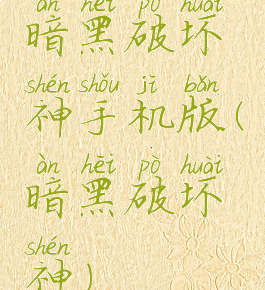 àn hēi pò huài
暗黑破坏
shén shǒu jī bǎn
神手机版(
àn hēi pò huài
暗黑破坏
shén
神)